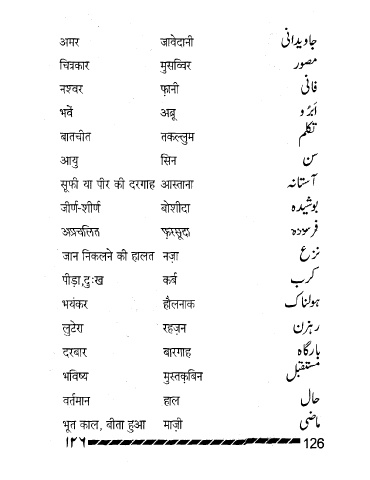 अमर जावेदानी جاویدانی
चित्रकार मुसव्विर مصور
नश्वर फ़ानी فانی
भवें अब्रू اَبرُو
बातचीत तकल्लुम تکلم
आयु सिन سن
सूफी या पीर की दरगाह आस्ताना آستانہ
जीर्ण-शीर्ण बोशीदा بوشیدہ
अप्रचलित फ़रसूदा فرسودہ
जान निकलने की हालत नज़ा نزع
पीड़ा,दुःख कर्ब کرب
भयंकर हौलनाक ہولناک
लुटेरा रहज़न رہزن
दरबार बारगाह بارگاہ
भविष्य मुस्तक़बिन مستقبل
वर्तमान हाल حال
भूत काल, बीता हुआ माज़ी ماضی
۱۲۶ 126